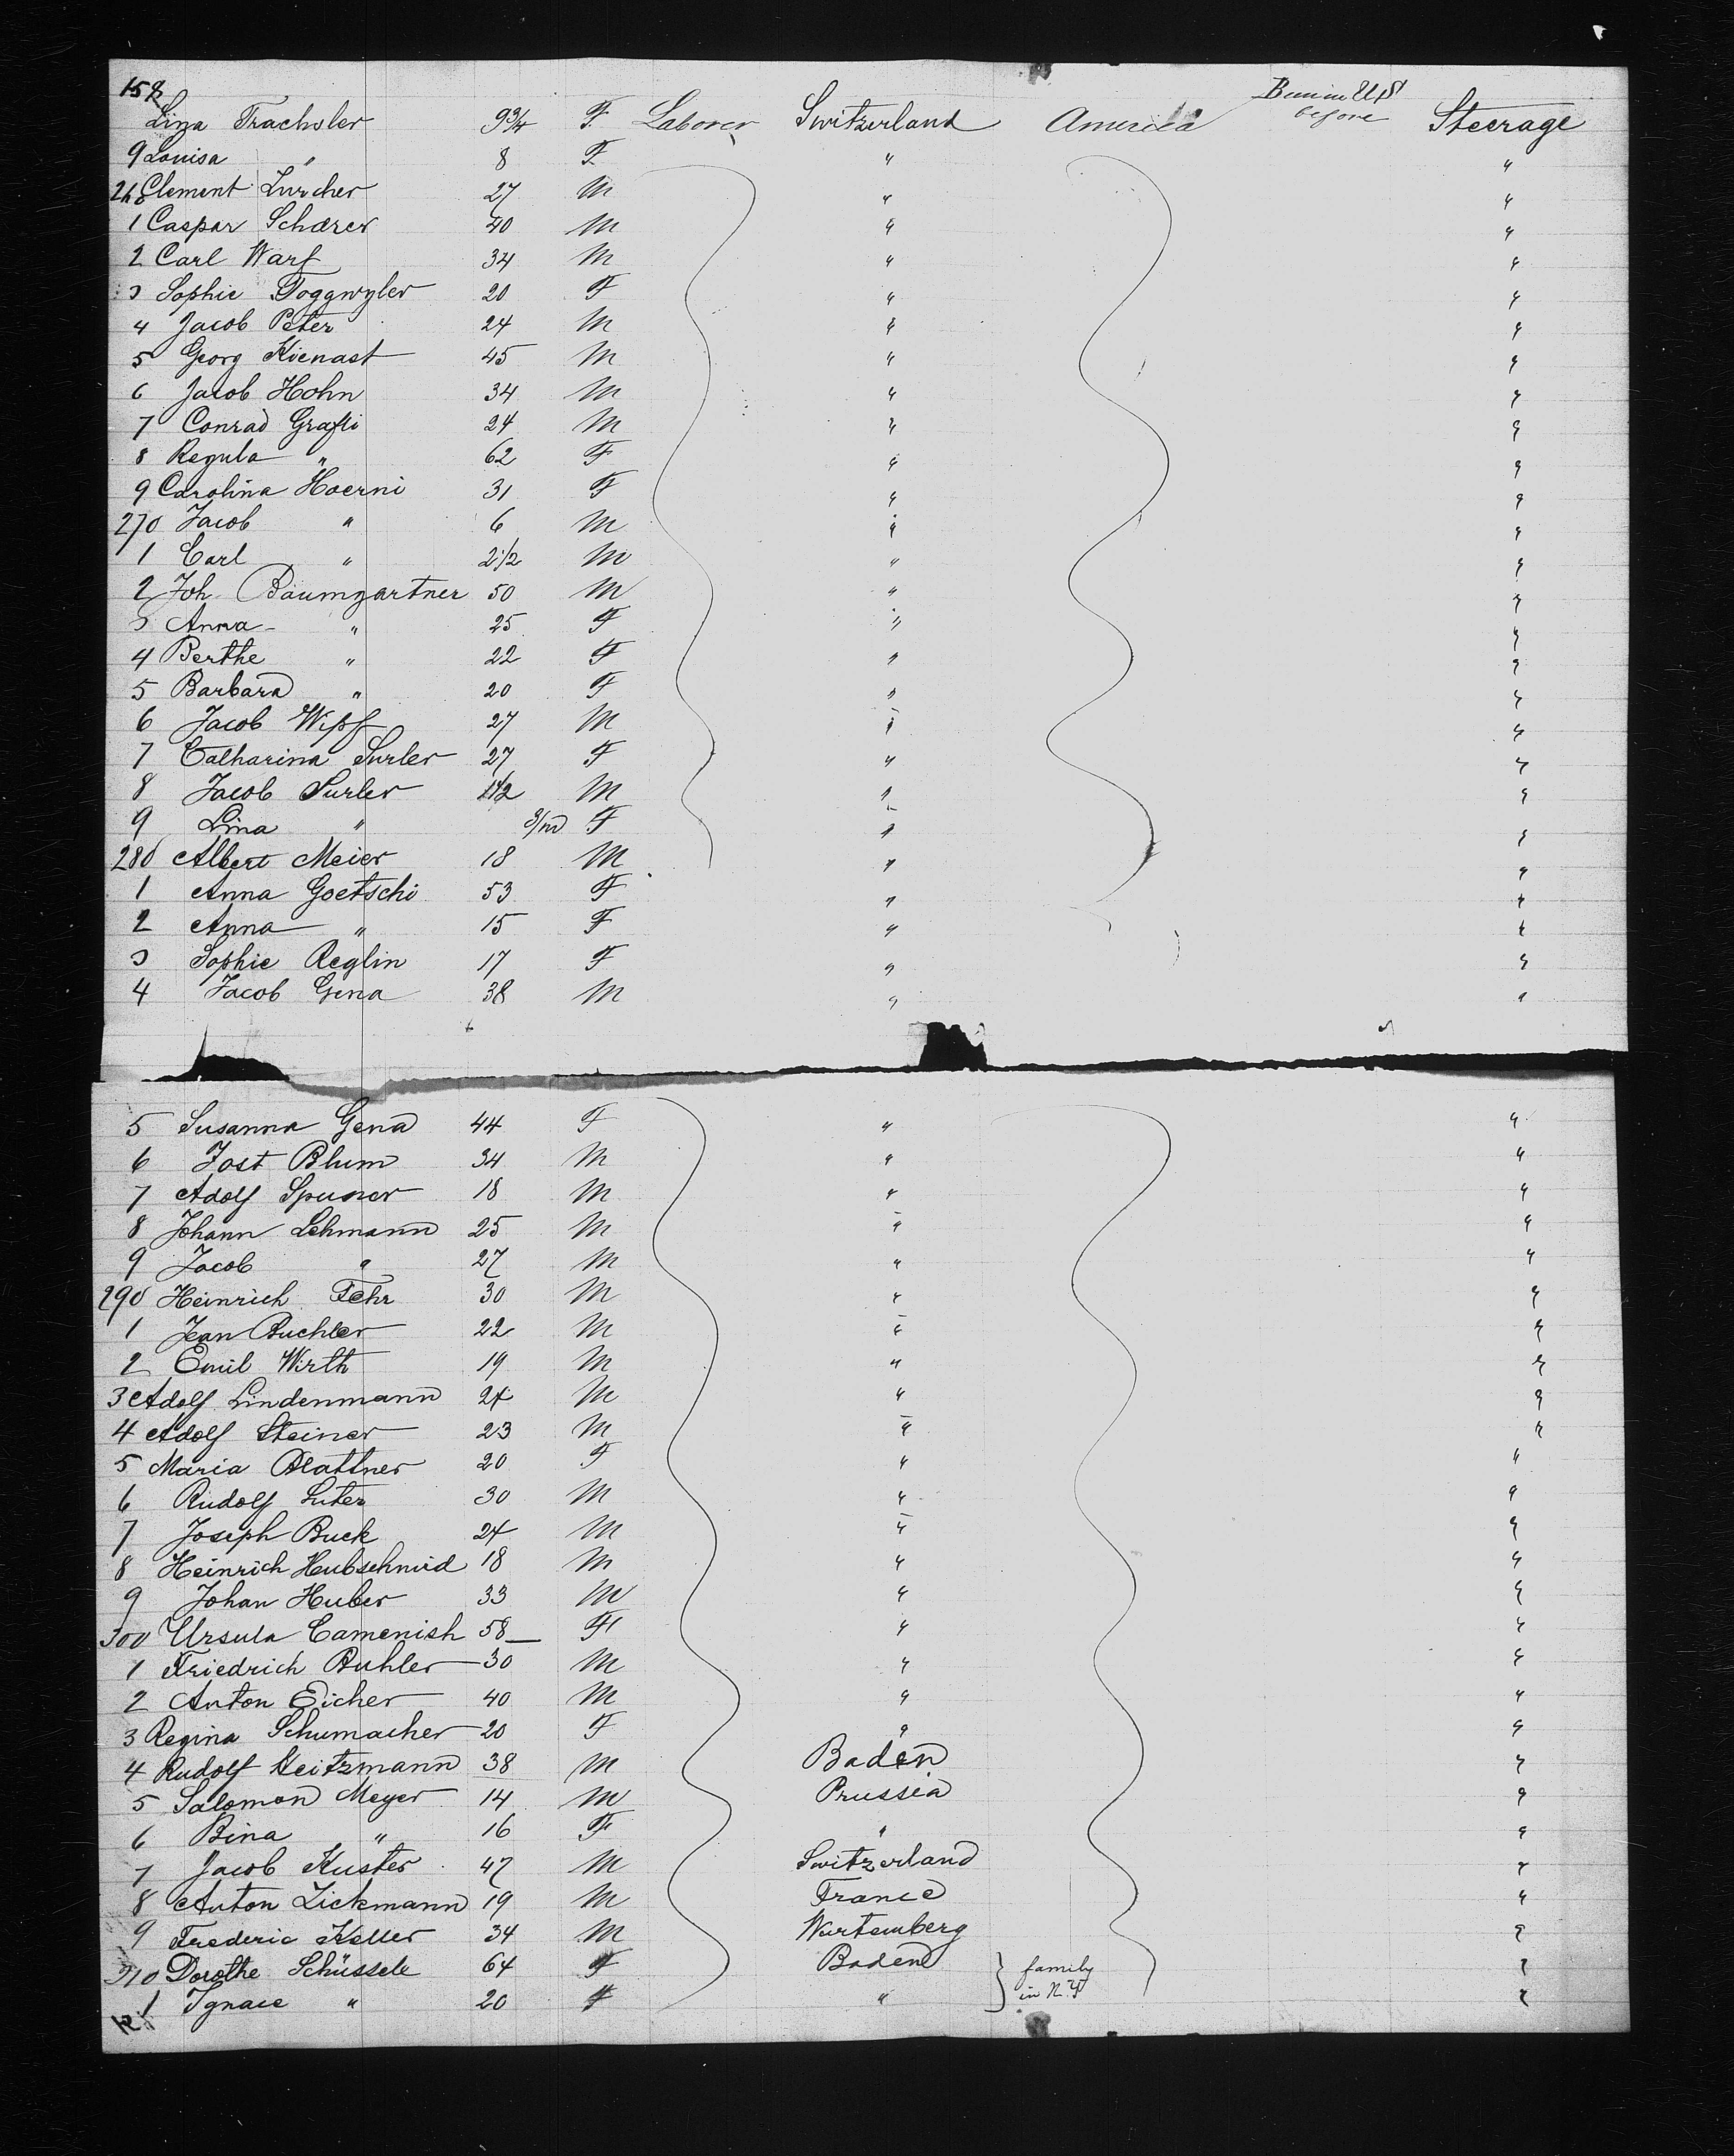 158 Lina Trachsler 9 3/4 F. Laborer Switzerland America Been in U.S before Steerage
9 Louisa " 8 F. " "
260 Clement Zurcher 27 M " "
1 Caspar Schærer 40 M " "
2 Carl Warf 34 M " "
3 Sophie Toggwyler 20 F " "
4 Jacob Peter 24 M " "
5 Georg Kienast 45 M " "
6 Jacob Hohn 34 M " "
7 Conrad Grafli 24 M " "
8 Regula " 62 F " "
9 Carolina Hoerni 31 F " "
270 Jacob " 6 M " "
1 Carl " 2 1/2 M " "
2 Joh Baumgartner 50 M " "
3 Anna " 25 F " "
4 Berthe " 22 F " "
5 Barbara " 20 F " "
6 Jacob Wipf 27 M " "
7 Catharina Surler 27 F " "
8 Jacob Surler 1 1/2 M " "
9 Lina " 3/m F " "
280 Albert Meier 18 M " "
1 Anna Goetschi 53 F " "
2 Anna " 15 F " "
3 Sophie Reglin 17 F " "
4 Jacob Gena 38 M " "
5 Susanna Gena 44 F " "
6 Jost Blum 34 M " "
7 Adolf Spuner 18 M " "
8 Johann Lehmann 25 M " "
9 Jacob " 27 M " "
290 Heinrich Fehr 30 M " "
1 Jean Buchler 22 M " "
2 Emil Wirth 19 M " "
3 Adolf Lindenmann 24 M " "
4 Adolf Steiner 23 M " "
5 Maria Blattner 20 F " "
6 Rudolf Suter 30 M " "
7 Joseph Buck 24 M " "
8 Heinrich Hubschmid 18 M " "
9 Johan Huber 33 M " "
300 Ursula Camenish 58 F " "
1 Friedrich Buhler 30 M " "
2 Anton Eicher 40 M " "
3 Regina Schumacher 20 F " "
4 Rudolf Heitzmann 38 M Baden "
5 Salomon Meyer 14 M Prussia "
6 Bina " 16 F " "
7 Jacob Kuster 47 M Switzerland "
8 Anton Zickmann 19 M France "
9 Frederic Keller 34 M Wurtemberg "
310 Dorothe Schüssele 64 F Baden } family "
1 Ignace " 20 F " in N.Y "